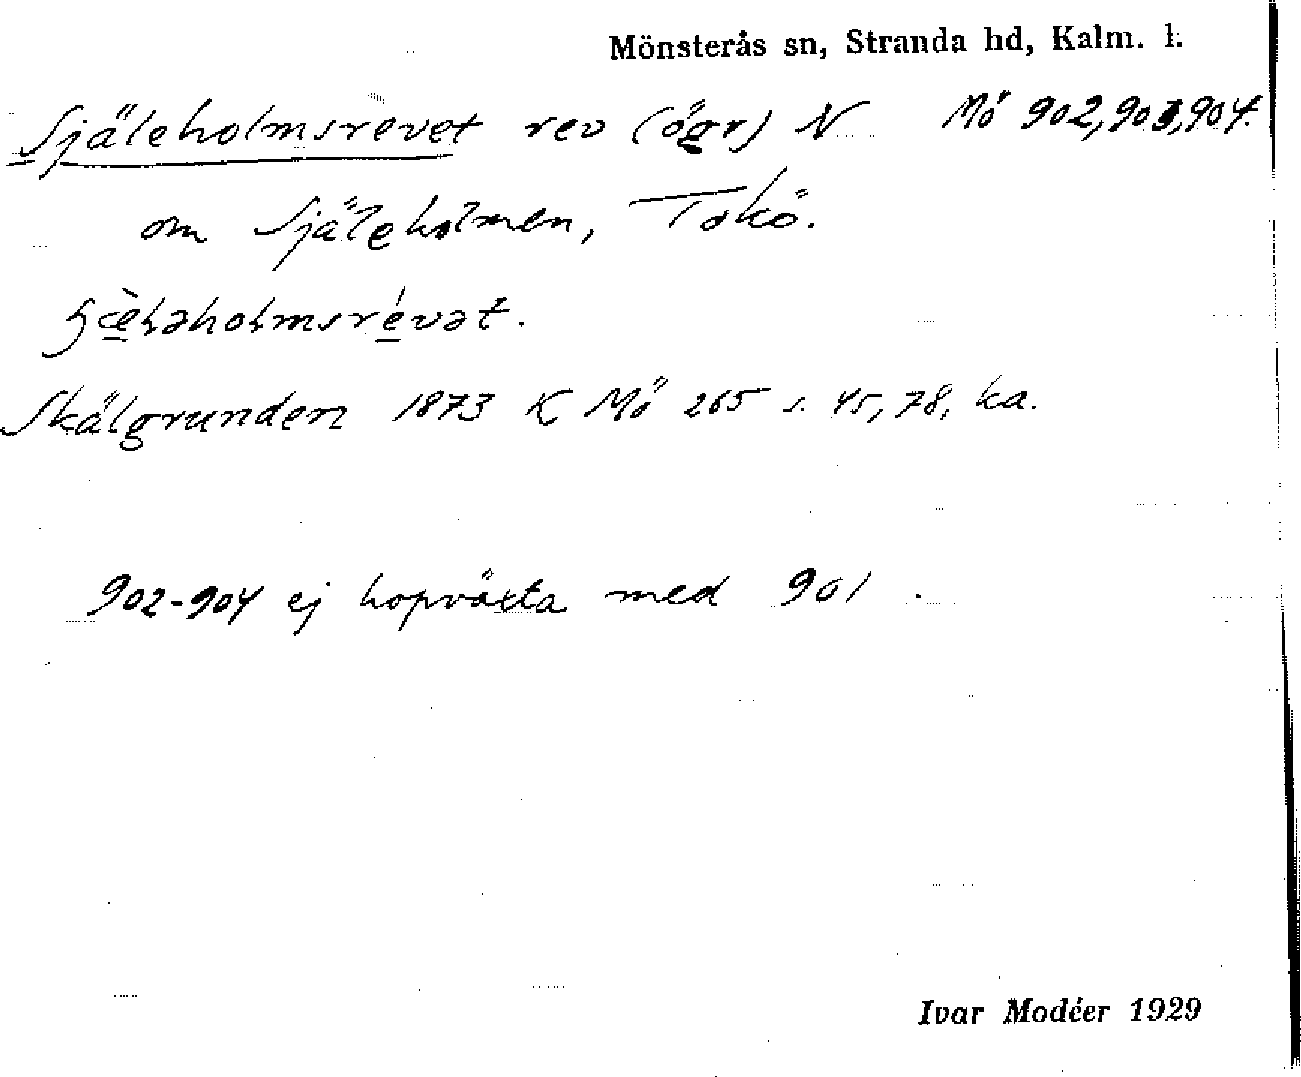 Mönsterås sn, Stranda hd, Kalm. l.
Själeholmsrevet rev (ögr) N Mö 902, 903, 904.
om Själeholmen, Tokö.
Skälgrunden 1873 K Mö 265 s. 45, 78, ka.
902-904 ej hopväxta med 901.
Ivar Modéer 1929